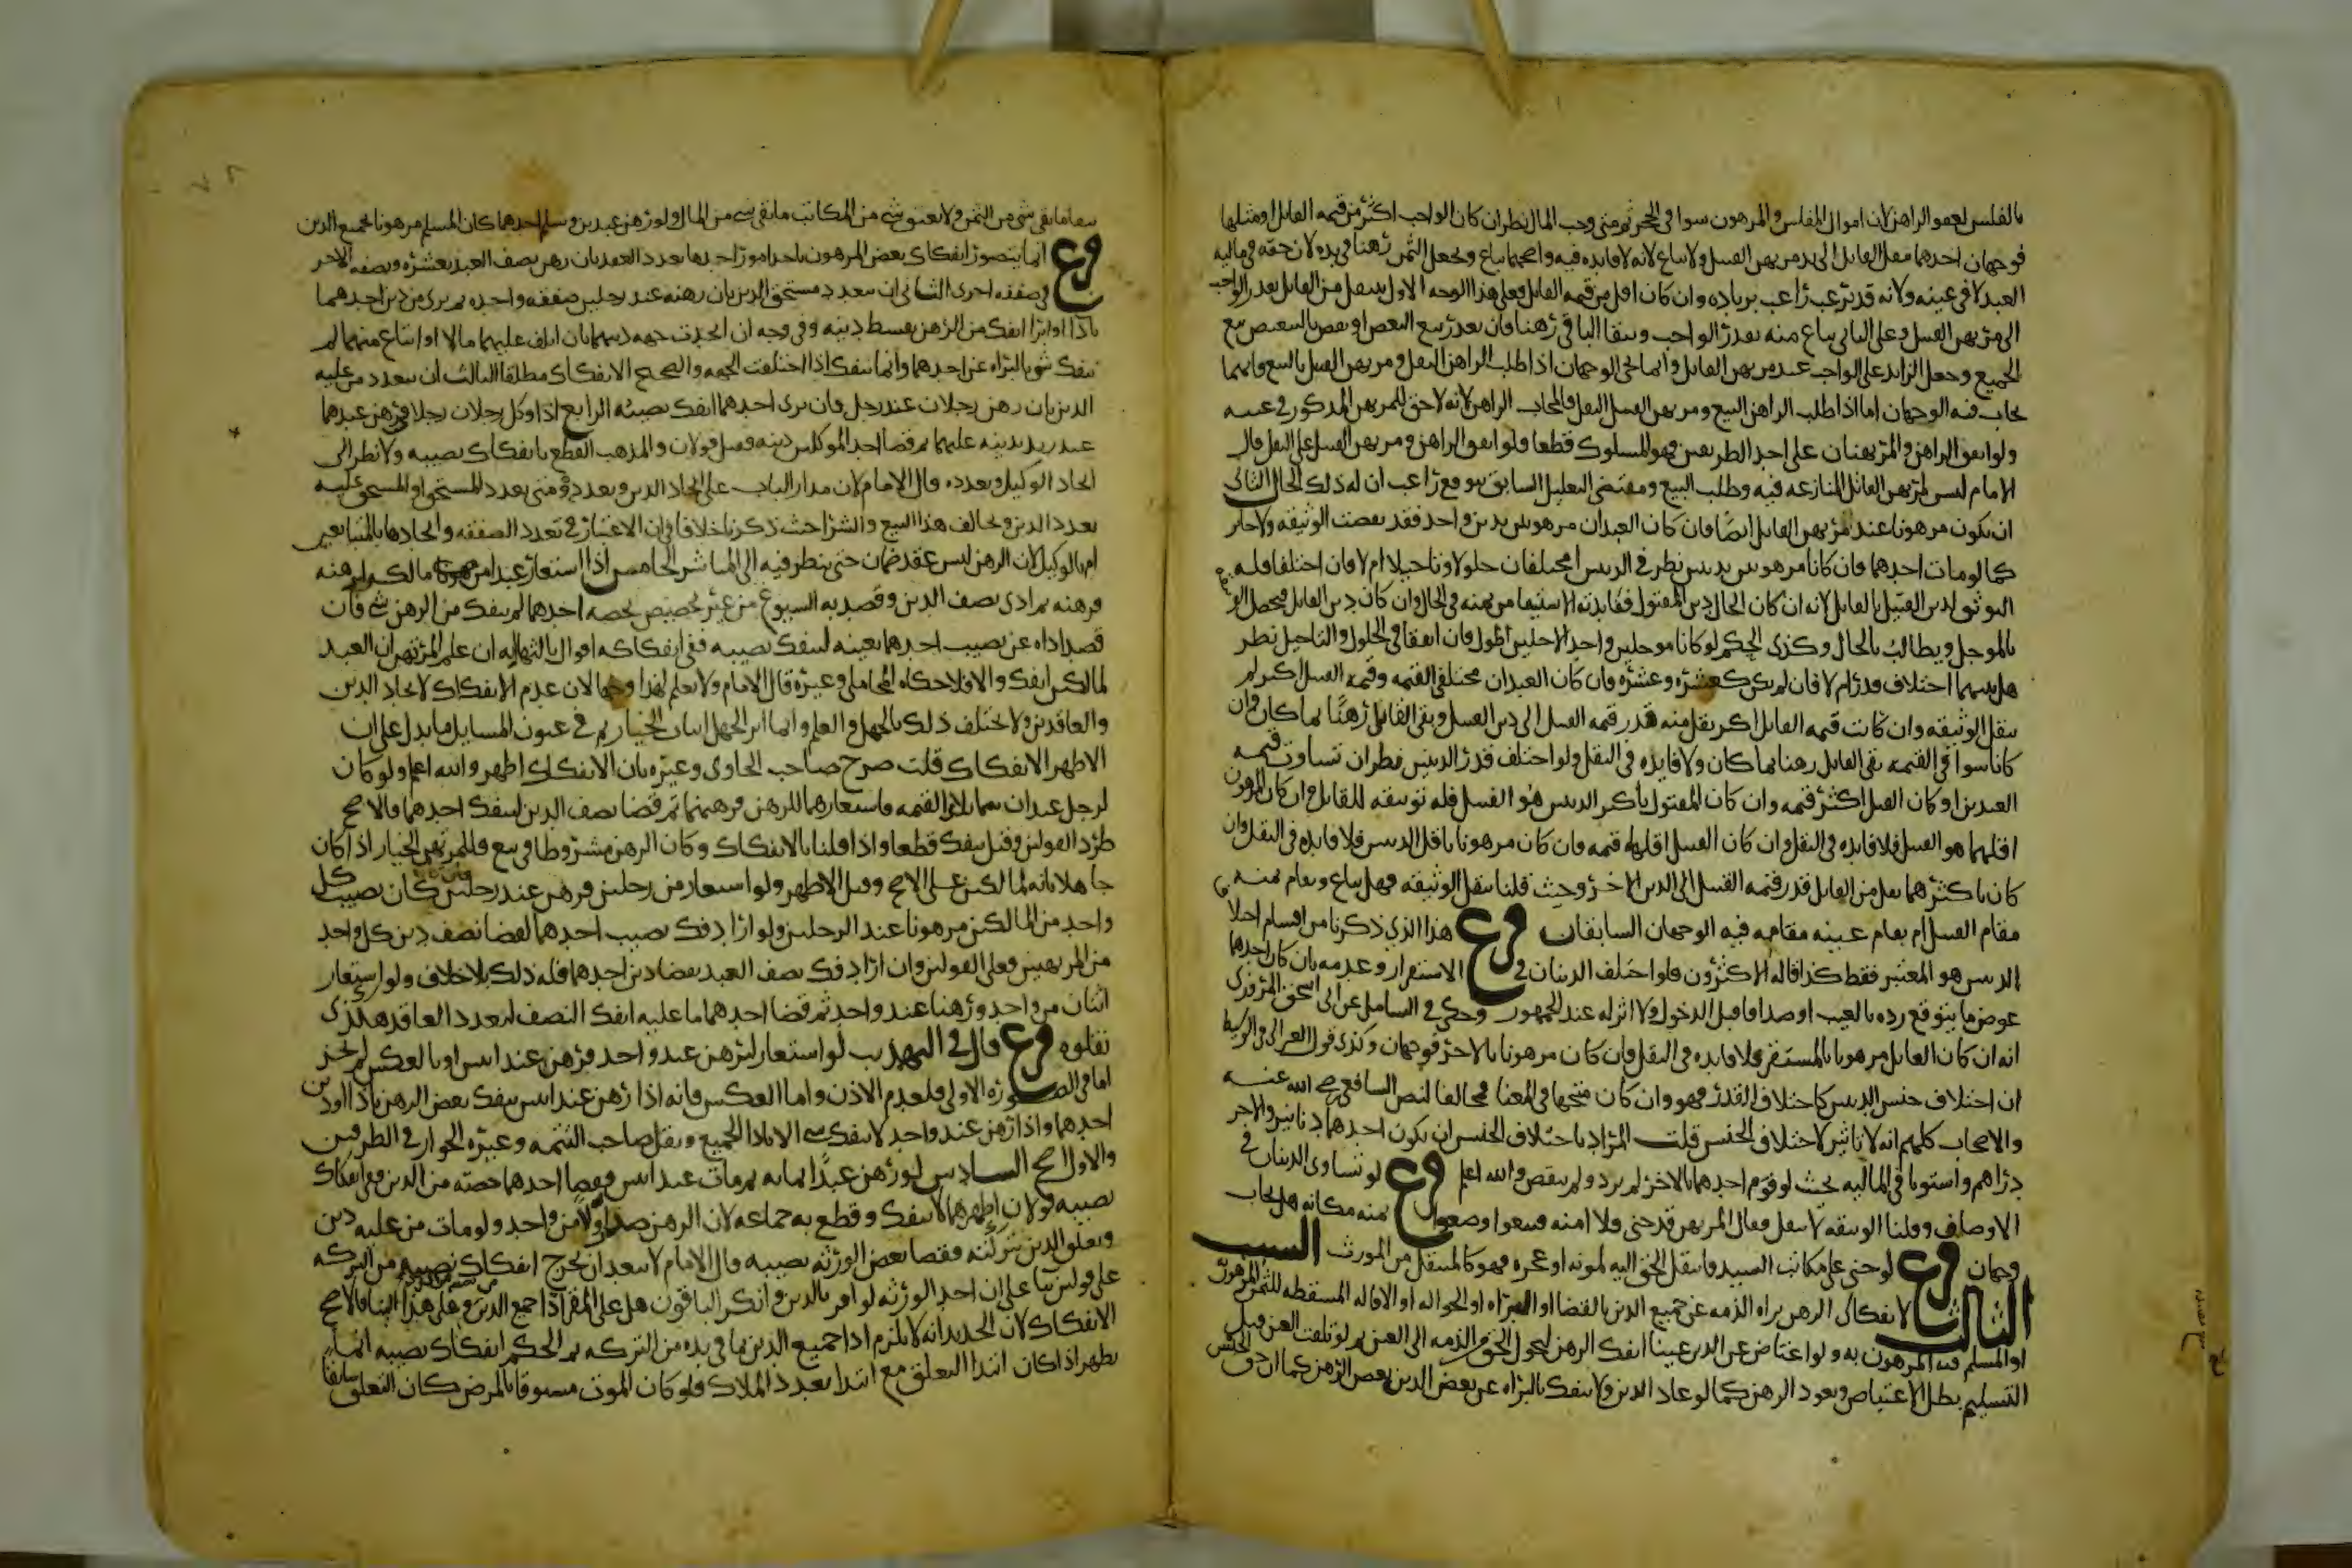 بالفلس لعفو الراهن لان اموال المفلس والمرهون سوا في الحجر ثم متى وجب المال نظر ان كان الواجب اكثر من قيمه القاتل او مثلها
فوجهان احدهما ينقل القاتل الى يد مرتهن القتيل ولا يباع لانه لا فايده فيه واصحهما يباع ويجعل الثمن رهنا في يده لان حقه في ماليه
العبد لا في عينه ولانه قد يرغب راغب بزياده وان كان اقل من قيمه القاتل فعلى هذا الوجه الاول ينقل من القاتل بقدر الواجب
الى مرتهن القتيل وعلى الثاني يباع منه بقدر الواجب ويبقا الباقي رهنا فان تعذر بيع البعض او نقص بالتبعيض بيع
الجميع وجعل الزايد على الواجب عند مرتهن القاتل وانما يجي الوجهان اذا طلب الراهن النقل ومرتهن القتيل البيع فايهما
يجاب فيه الوجهان اما اذا طلب الراهن البيع ومرتهن القتيل النقل فالمجاب الراهن لانه لا حق للمرتهن المذكور في عينه
ولو اتفق الراهن والمرتهنان على احد الطريقين فهو المسلوك قطعا ولو اتفق الراهن ومرتهن القتيل على النقل قال
الامام ليس لمرتهن القاتل المنازعه فيه وطلب البيع ومقتضى التعليل السابق بتوقع راغب ان له ذلك الحال الثاني
ان يكون مرهونا عند مرتهن القاتل ايضا فان كان العبدان مرهونين بدين واحد فقد نقصت الوثيقه ولا جابر
كما لو مات احدهما وان كانا مرهونين بدينين نظر في الدينين امختلفان حلولا وتاجيلا ام لا فان اختلفا فله
التوثق لدين القتيل بالقاتل لانه ان كان الحال دين المقتول ففايدته الاستيفا من ثمنه في الحال وان كان دين القاتل فيحصل
بالموجل ويطالب بالحال وكذى الحكم لو كانا موجلين واحد الاجلين اطول وان اتفقا في الحلول والتاجيل نظر
هل بينهما اختلاف قدر ام لا فان لم يكن كعشره وعشره فان كان العبدان مختلفي القيمه وقيمه القتيل اكثر لم
ينقل الوثيقه وان كانت قيمه القاتل اكثر نقل منه قدر قيمه القتيل الى دين القتيل وبقي القاتل رهنا بما كان وان
كانا سوا في القيمه بقي القاتل رهنا بما كان ولا فايده في النقل ولو اختلف قدر الدينين نظر ان تساوت قيمه
العبدين او كان القتيل اكثر قيمه وان كان المقتول باكثر الدينين هو القتيل فله توثيقه للقاتل وان كان المرهون
اقلهما هو القتيل فلا فايده في النقل وان كان القتيل اقلهما قيمه فان كان مرهونا باقل الدينين فلا فايده في النقل وان
كان باكثرهما نقل من القاتل قدر قيمه القتيل الى الدين الاخر وحيث قلنا ينقل الوثيقه فهل يباع ويقام ثمنه
مقام القتيل ام يقام عينه مقامه فيه الوجهان السابقان فرع هذا الذي ذكرنا من اقسام اختلا
الدينين هو المعتبر فقط كذا قاله الاكثرون فلو اختلف الدينان في الاستقرار وعدمه بان كان احدهما
عوض ما يتوقع رده بالعيب او صداقا قبل الدخول ولا اثر له عند الجمهور وحكى في الشامل عن ابي اسحق المروزي
انه ان كان القاتل مرهونا بالمستقر فلا فايده في النقل وان كان مرهونا بالاخر فوجهان وكذى قول الغزالي في الوسيط
ان اختلاف جنس الدينين كاختلاف القدر فهو وان كان متجها في المعنا مخالفا لنص الشافعي رضي الله عنه
والاصحاب كلهم انه لا تاثير لاختلاف الجنس قلت المراد باختلاف الجنس ان يكون احدهما دنانير والاخر
دراهم واستويا في الماليه بحيث لو قوم احدهما بالاخر لم يزد ولم ينقص والله اعلم فرع لو تساوى الدينان في
الاوصاف وقلنا الوثيقه لا تنقل فقال المرتهن قد جنى فلا امنه فبيعوا وضعوا ثمنه مكانه هل يجاب
وجهان فرع لو جنى على مكاتب السيد فانتقل الحق اليه لموته او عجزه فهو كالمنتقل من المورث السبب
الثالث لانفكاك الرهن براه الذمه عن جميع الدين بالقضا او البراه او الحواله او الاقاله المسقطه للثمن المرهون
او المسلم فيه المرهون به ولو اعتاض عن الدين عينا انفك الرهن لتحول الحق من الذمه الى العين ثم لو تلفت العين قبل
التسليم بطل الاعتياض ويعود الرهن كما لو عاد الدين ولا ينفك بالبراه عن بعض الدين بعض الرهن كما ان حق الحبس
يبقا ما بقي شي من الثمن ولا يعتق شي من المكاتب ما بقي شي من المال ولو رهن عبدين وسلم احدهما كان المسلم مرهونا بجميع الدين
فرع انما يتصور انفكاك بعض المرهون باحد امور احدها تعدد العقد بان رهن نصف العبد بعشره ونصفه الاخر
في صفقه اخرى الثاني ان يتعدد مستحق الدين بان رهنه عند رجلين صفقه واحده ثم برى من دين احدهما
باذا او ابرا انفك من الرهن بقسط دينه وفي وجه ان اتحدت جهه دينهما بان اتلف عليهما مالا او ابتاع منهما لم
ينفك شي بالبراه عن احدهما وانما ينفك اذا اختلفت الجهه والصحيح الانفكاك مطلقا الثالث ان يتعدد من عليه
الدين بان رهن رجلان عند رجل فان برى احدهما انفك نصيبه الرابع اذا وكل رجلان رجلا في رهن عبدهما
عند زيد بدينه عليهما ثم قضا احد الموكلين دينه فقيل قولان والمذهب القطع بانفكاك نصيبه ولا نظر الى
اتحاد الوكيل وتعدده قال الامام لان مدار الباب على اتحاد الدين وتعدده ومتى تعدد المستحق او المستحق عليه
تعدد الدين ويخالف هذا البيع والشرا حيث ذكرنا خلافا في ان الاعتبار في تعدد الصفقه واتحادها بالمتبايعين
ام بالوكيل لان الرهن ليس عقد ضمان حتى ينظر فيه الى المباشر الخامس اذا استعار عبدا من مالكيه ليرهنه
فرهنه ثم ادى نصف الدين وقصد به الشيوع من غير تخصيص لحصه احدهما لم ينفك من الرهن شي وان
قصد اداه عن نصيب احدهما بعينه لينفك نصيبه ففي انفكاكه اقوال ثالثها انه ان علم المرتهن ان العبد
لمالكين انفك والا فلا حكاه المحاملي وغيره قال الامام ولا نعلم لهذا وجها لان عدم الانفكاك لاتحاد الدين
والعاقدين ولا يختلف ذلك بالجهل والعلم وانما اثر الجهل اثبات الخيار ثم في عيون المسايل ما يدل على ان
الاظهر الانفكاك قلت صرح صاحب الحاوي وغيره بان الانفكاك اظهر والله اعلم ولو كان
لرجل عبدان متماثلا القيمه فاستعارهما للرهن فرهنهما ثم قضا نصف الدين لينفك احدهما فالاصح
طرد القولين وقيل ينفك قطعا واذا قلنا بالانفكاك وكان الرهن مشروطا في بيع فللمرتهن الخيار اذا كان
جاهلا بانه لمالكين على الاصح وقيل الاظهر ولو استعار من رجلين فرهن عند رجلين كان نصيب كل
واحد من المالكين مرهونا عند الرجلين ولو اراد فك نصيب احدهما لقضا نصف دين كل واحد
من المرتهنين فعلى القولين وان اراد فك نصف العبد بقضا دين احدهما فله ذلك بلا خلاف ولو استعار
اثنان من واحد ورهنا عند واحد ثم قضا احدهما ما عليه انفك النصف لتعدد العاقد هكذى
نقلوه فرع قال في التهذيب لو استعار ليرهن عند واحد فرهن عند اثنين او بالعكس لم يجز
اما في الصوره الاولى فلعدم الاذن واما العكس فانه اذا رهن عند اثنين ينفك بعض الرهن باذا دين
احدهما واذا رهن عند واحد لا ينفك شي الا باذا الجميع ونقل صاحب التتمه وغيره الجواز في الطرفين
والاول اصح السادس لو رهن عبدا بمايه ثم مات عن اثنين فقضا احدهما حصته من الدين ففي انفكاك
نصيبه قولان اظهرهما لا ينفك وقطع به جماعه لان الرهن صدر اولا من واحد ولو مات من عليه دين
وتعلق الدين بتركته فقضا بعض الورثه نصيبه قال الامام لا يبعد ان يخرج انفكاك نصيبه من التركه
على قولين بنا على ان احد الورثه لو اقر بالدين وانكر الباقون هل على المقر اذا جميع الدين وعلى هذا البنا فالاصح
الانفكاك لان الجديد انه لا يلزم اذا جميع الدين بما في يده من التركه ثم الحكم انفكاك نصيبه انما
يظهر اذا كان ابتدا التعلق مع ابتدا تعدد الملاك فلو كان الموت مسبوقا بالمرض كان التعلق سابقا